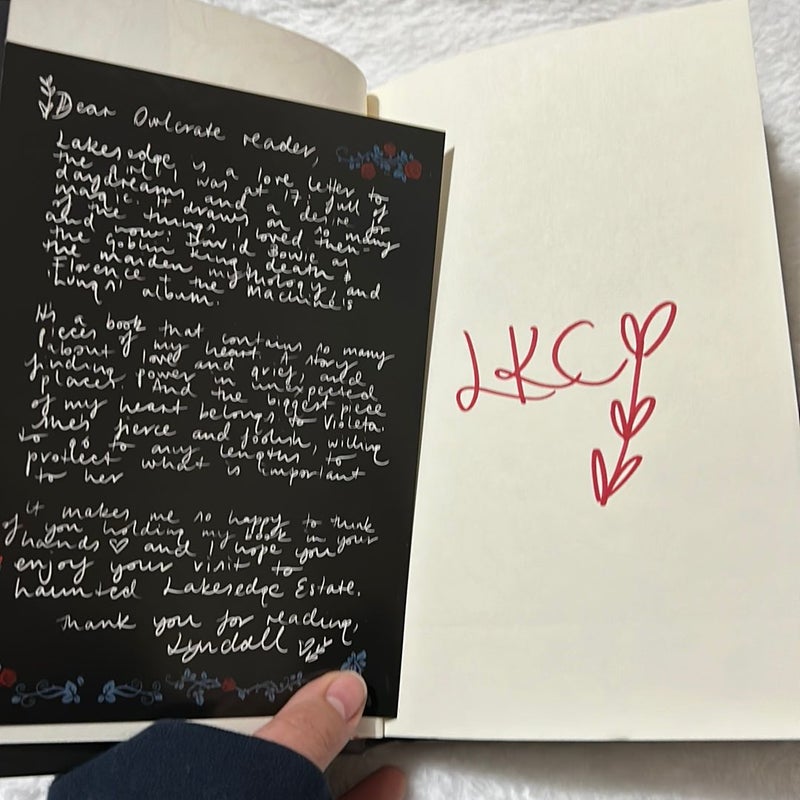 Dear Owlcrate reader,
Lakesedge is a love letter to
the girl I was at 17, full of
daydreams and a desire for
magic. It draws on so many
of the things I loved then
and now: David Bowie as
the Goblin King, death &
the maiden mythology, and
Florence + the Machine's
'Lungs' album.
It's a book that contains so many
pieces of my heart. A story
about love and grief, and
finding power in unexpected
places. And the biggest piece
of my heart belongs to Violeta.
She's fierce and foolish, willing
to go to any lengths to
protect what is important
to her
it makes me so happy to think
of you holding my book in your
hands ♡ and I hope you
enjoy your visit to
haunted Lakesedge Estate.
Thank you for reading,
Lyndall
LKC